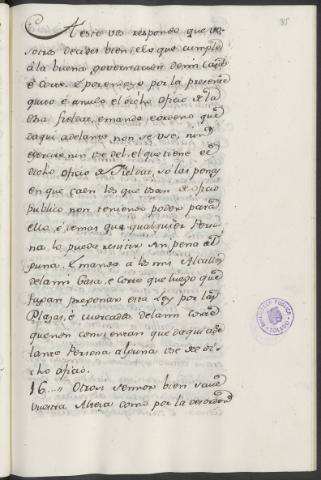 95
A esto vos respondo que vo-
sotros decides bien, è lo que cumple
à la buena governacion de mi casa
è Corte. E por ende yo por la presente
quito è anulo el dicho oficio de la
dha fieldad, è mando è ordeno que
daqui adelante non se use, nin
exercite, nin use del, el que tiene el
dicho oficio de Fieldad, só las penas
en que caen los que usan de oficio
publico non teniendo poder para
ello, è demas que qualquier Perso-
na lo pueda resistir sin pena al-
guna. E mando à los mis Alcaldes
de la mi Casa, è Corte que luego que
fagan pregonar esta Ley por las
Plazas, è mercados de la mi Corte
que non consientan que daqui ade-
lante Persona alguna use de di-
cho oficio.
16..... Otrosi Señor bien save
vuestra Alteza como por la
BIBLIOTECA PUBLICA
TOLEDO